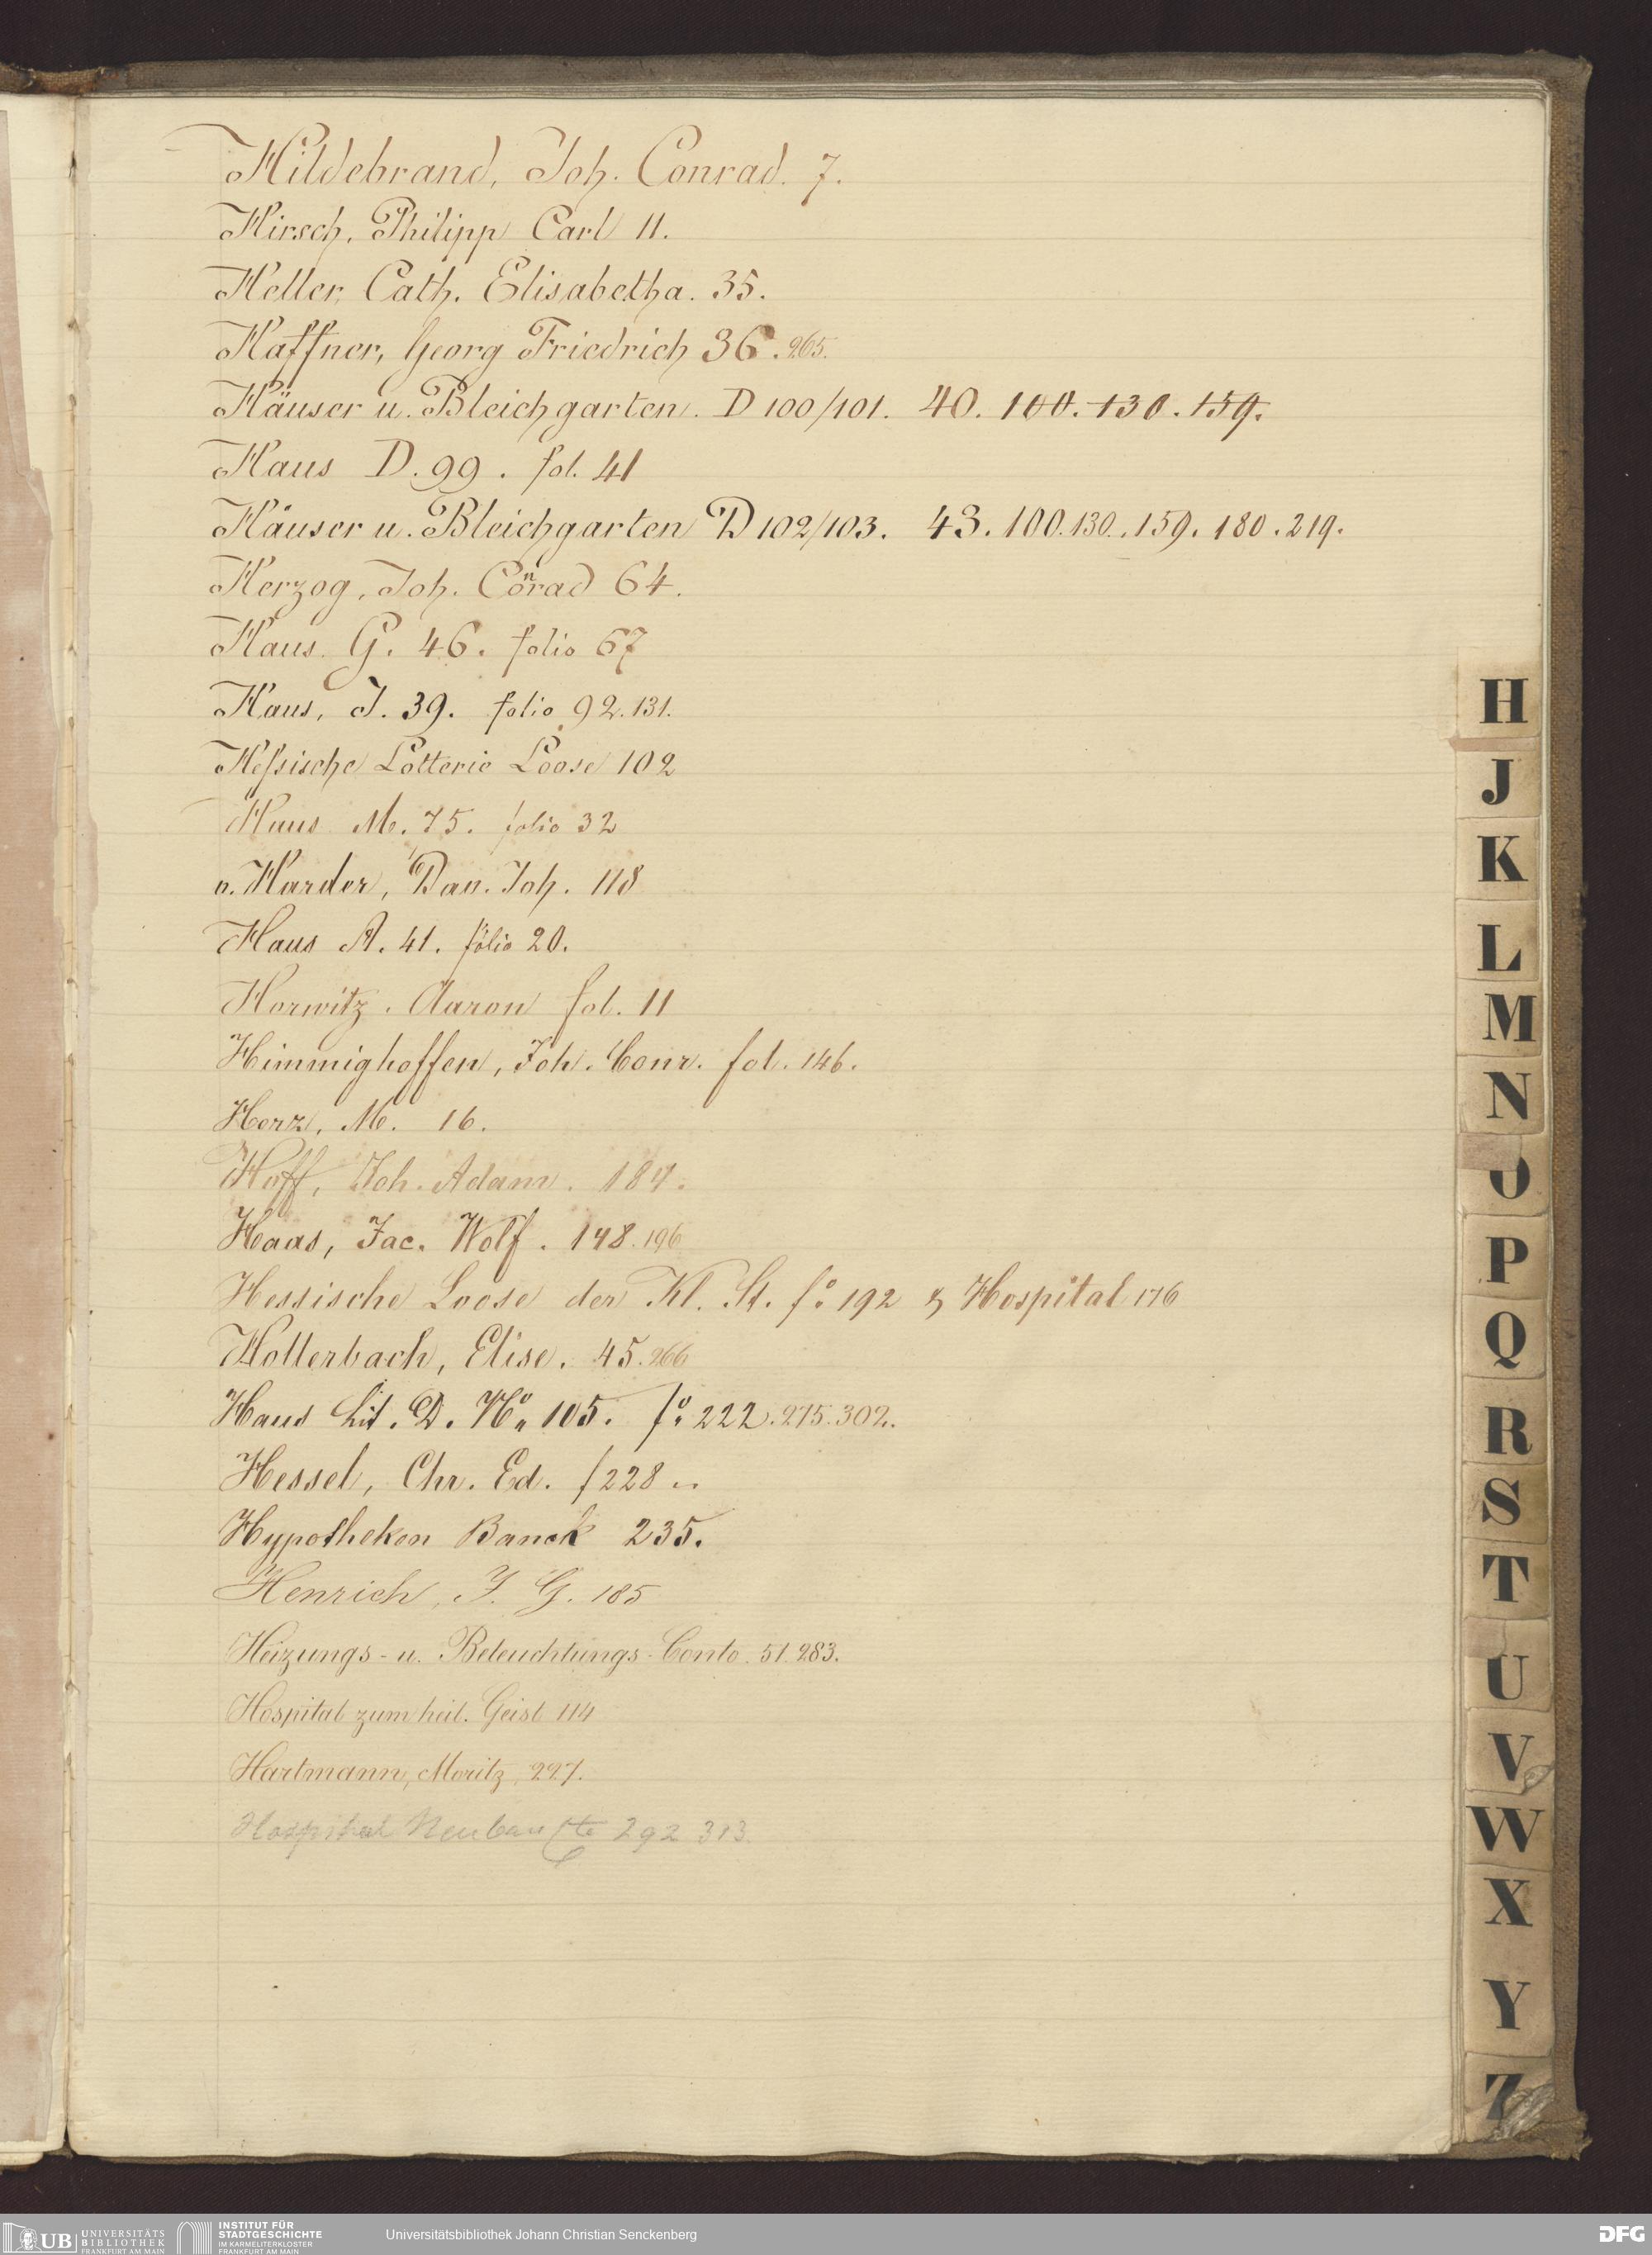 Hildebrand, Joh. Conrad. 7.
Hirsch, Philipp Carl 11.
Heller, Cath. Elisabetha. 35.
Haffner, Georg Friedrich 36. 265.
Häuser u. Bleichgarten. D 100/101. 40. 100. 130. 159.
Haus D. 99. fol. 41
Häuser u. Bleichgarten D 102/103. 43. 100. 130. 159. 180. 219.
Herzog, Joh. Conrad 64.
Haus G. 46. folio 67
Haus, J. 39. folio 92. 131.
Heſsische Lotterie Loose 102
Haus M. 75. folio 32
v. Harder, Dan. Joh. 118
Haus A. 41. folio 20.
Horwitz. Aaron fol. 11
Himmighoffen, Joh. Conr. fol. 146.
Herz, M. 16.
Hoff, Joh. Adam. 184.
Haas, Jac. Wolf. 148. 196
Hessische Loose der Kl. St. fo 192 & Hospital 176
Hollerbach, Elise. 45. 266
Haus Lit. D. No 105. fo 222. 275. 302.
Hessel, Chr. Ed. f 228
Hypotheken Banck 235.
Henrich, J. G. 185
Heizungs- u. Beleuchtungs-Conto. 51. 283.
Hospital zum heil. Geist 114
Hartmann, Moritz, 227.
Hospital Neubau Cto 292 313.
H
J
K
L
M
N
O
P
Q
R
S
T
U
V
W
X
Y
Z
UB UNIVERSITÄTS BIBLIOTHEK FRANKFURT AM MAIN
INSTITUT FÜR STADTGESCHICHTE IM KARMELITERKLOSTER FRANKFURT AM MAIN
Universitätsbibliothek Johann Christian Senckenberg
DFG